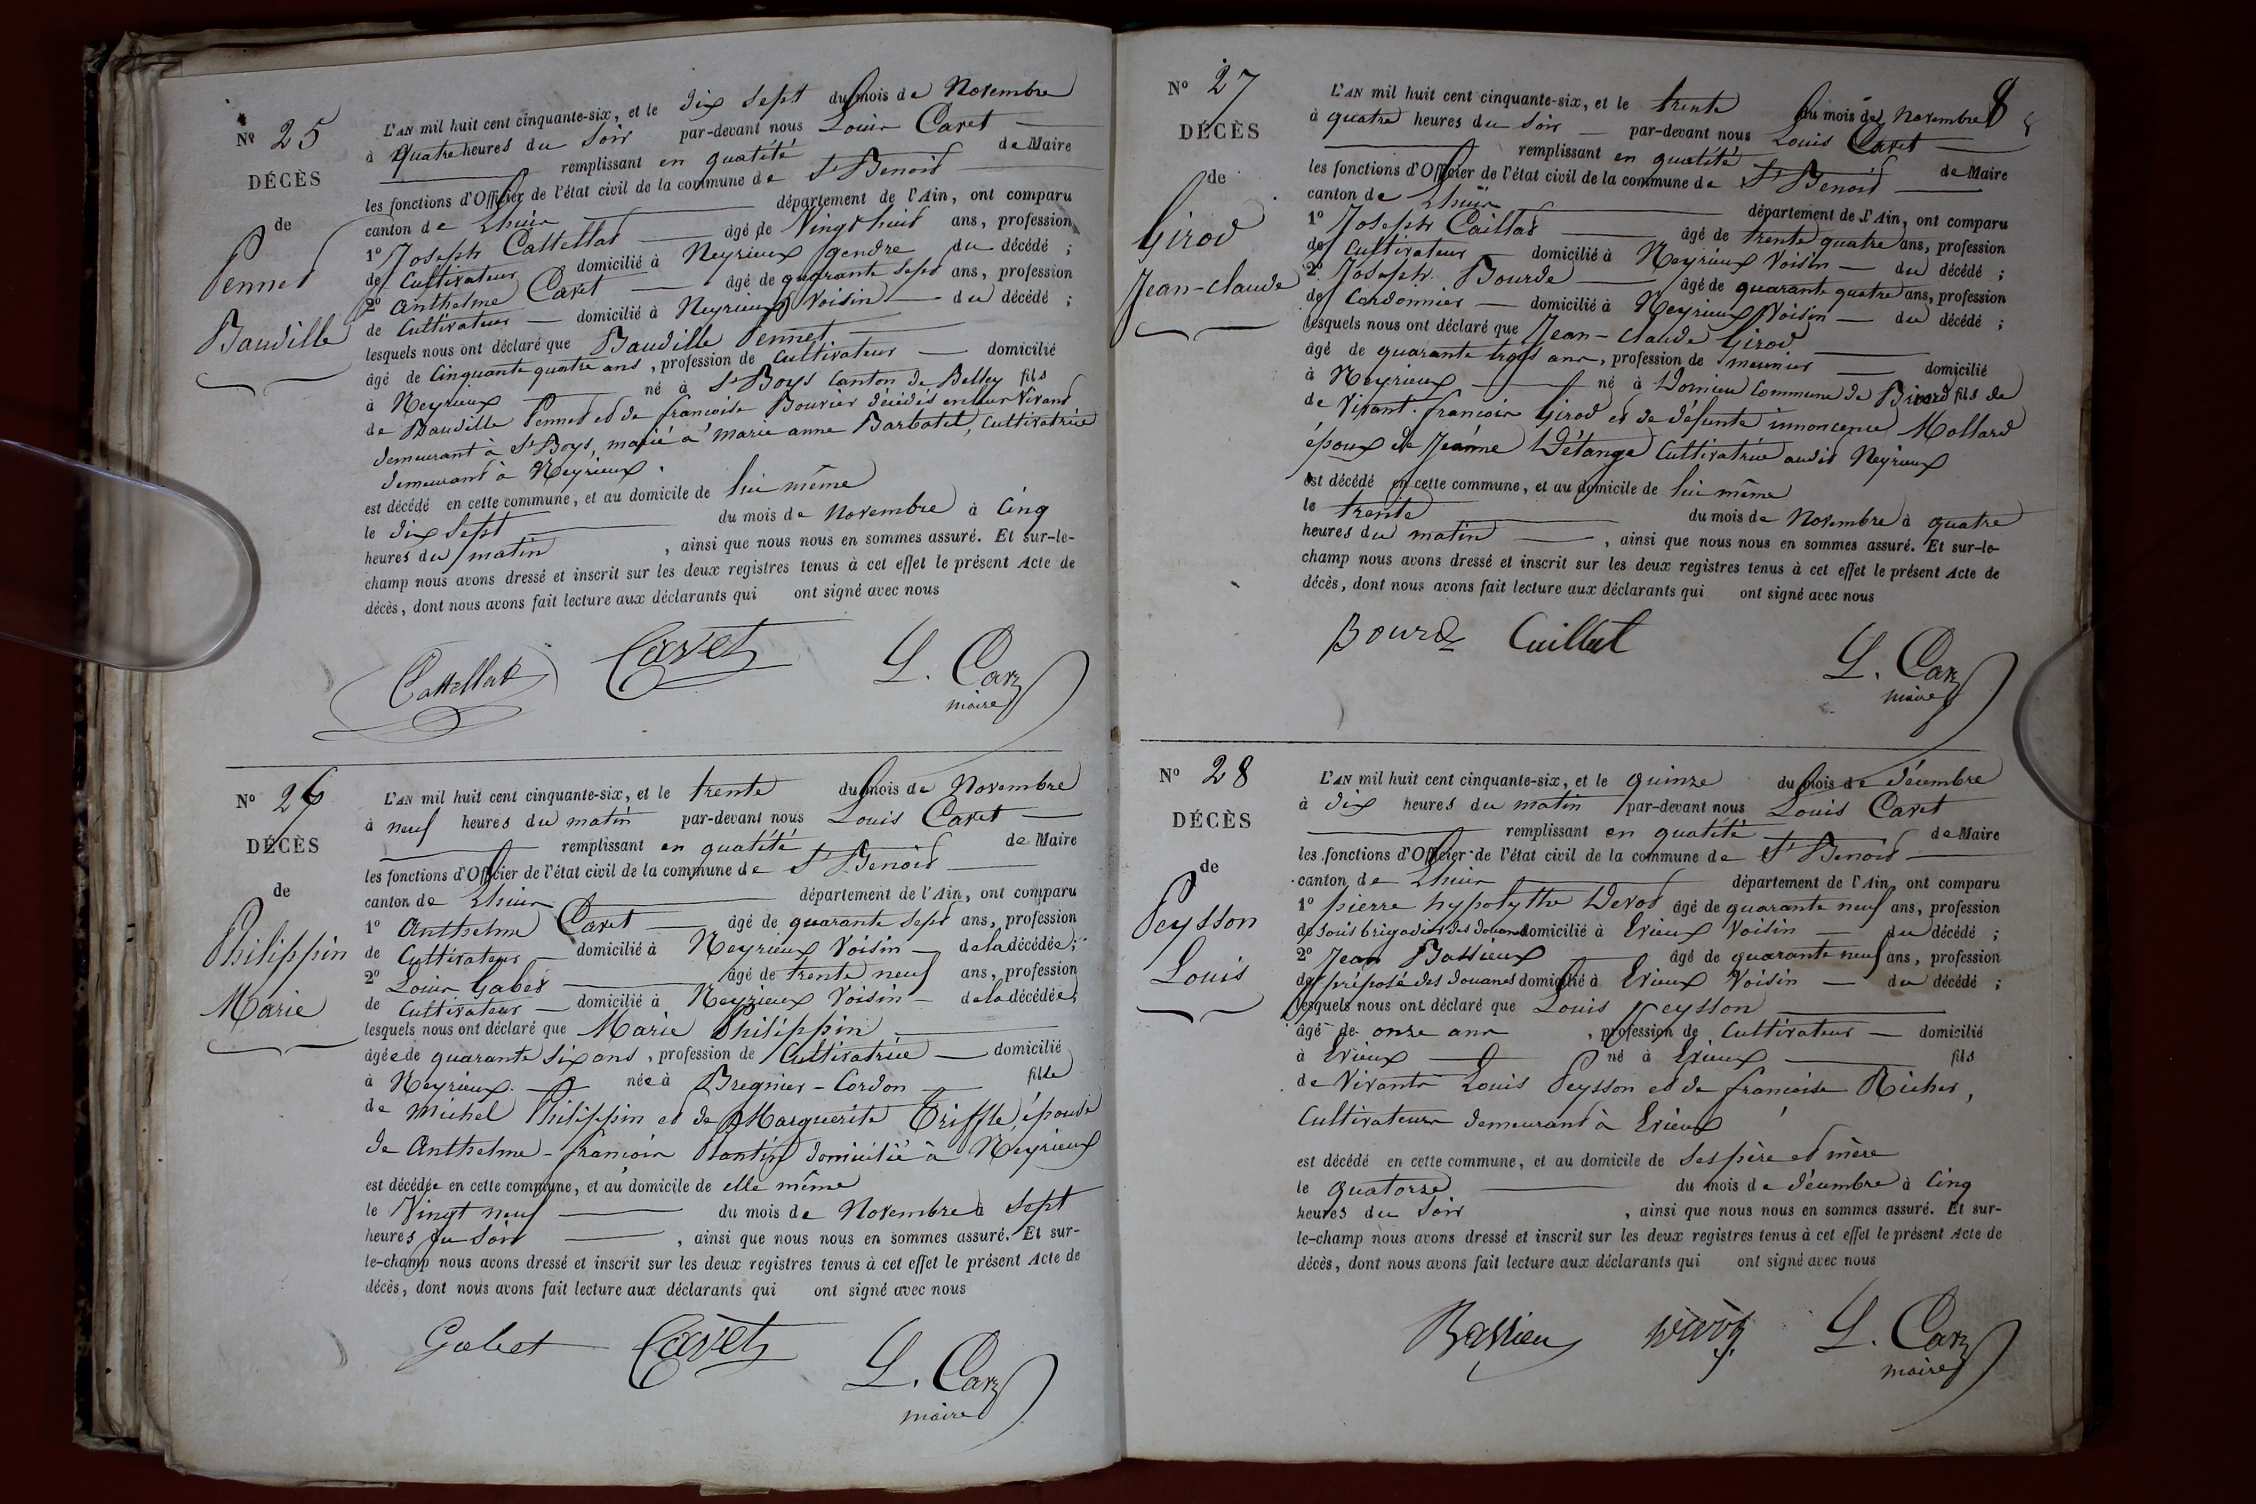 Nº 25
DÉCÈS
de
Pennet
Baudille
L'AN mil huit cent cinquante-six, et le dix sept du mois de Novembre
à quatre heures du soir par-devant nous Louis Cavet
remplissant en qualité de Maire
les fonctions d'Officier de l'état civil de la commune de St Benoid
canton de Lhuis département de l'Ain, ont comparu
1º Joseph Cattellat âgé de Vingt huit ans, profession
de Cultivateur domicilié à Neyrieux gendre du décédé ;
2º Anthelme Cavet âgé de quarante sept ans, profession
de Cultivateur domicilié à Neyrieux Voisin du décédé ;
lesquels nous ont déclaré que Baudille Pennet
âgé de Cinquante quatre ans, profession de Cultivateur domicilié
à Neyrieux né à St Boys Canton de Belley fils
de Baudille Pennet et de francoise Bouvier décédés en leur Vivant
demeurant à St Boys, marié à marie anne Barbotet, Cultivatrice
demeurant à Neyrieux.
est décédé en cette commune, et au domicile de lui même
le dix sept du mois de Novembre à Cinq
heures du matin, ainsi que nous nous en sommes assuré. Et sur-le-
champ nous avons dressé et inscrit sur les deux registres tenus à cet effet le présent Acte de
décès, dont nous avons fait lecture aux déclarants qui ont signé avec nous
Cattellat Cavet L. Cavet
maire
Nº 26
DÉCÈS
de
Philippin
Marie
L'AN mil huit cent cinquante-six, et le trente du mois de Novembre
à neuf heures du matin par-devant nous Louis Cavet
remplissant en qualité de Maire
les fonctions d'Officier de l'état civil de la commune de St Benoid
canton de Lhuis département de l'Ain, ont comparu
1º Anthelme Cavet âgé de quarante sept ans, profession
de Cultivateur domicilié à Neyrieux Voisin de la décédée ;
2º Louis Gabet âgé de trente neuf ans, profession
de Cultivateur domicilié à Neyrieux Voisin de la décédée ;
lesquels nous ont déclaré que Marie Philippin
âgée de quarante six ans, profession de Cultivatrice domicilié
à Neyrieux née à Bregnier-Cordon fille
de Michel Philippin et de Marguerite Triffle épouse
de Anthelme-francois Plantin domicilié à Neyrieux
est décédée en cette commune, et au domicile de elle même
le Vingt neuf du mois de Novembre à Sept
heures du Soir, ainsi que nous nous en sommes assuré. Et sur-
le-champ nous avons dressé et inscrit sur les deux registres tenus à cet effet le présent Acte de
décès, dont nous avons fait lecture aux déclarants qui ont signé avec nous
Gabet Cavet L. Cavet
maire
8
Nº 27
DÉCÈS
de
Girod
Jean-Claude
L'AN mil huit cent cinquante-six, et le trente du mois de Novembre
à quatre heures du soir par-devant nous Louis Cavet
remplissant en qualité de Maire
les fonctions d'Officier de l'état civil de la commune de St Benoid
canton de Lhuis département de l'Ain, ont comparu
1º Joseph Caillat âgé de trente quatre ans, profession
de Cultivateur domicilié à Neyrieux Voisin du décédé ;
2º Joseph Bourde âgé de quarante quatre ans, profession
de Cordonnier domicilié à Neyrieux Voisin du décédé ;
lesquels nous ont déclaré que Jean-Claude Girod
âgé de quarante trois ans, profession de meunier domicilié
à Neyrieux né à Domieu Commune de fils de
de Vivant francois Girod et de défunte innoncence Mollard
époux de Jeanne Détange Cultivatrice audit Neyrieux
est décédé en cette commune, et au domicile de lui même
le trente du mois de Novembre à quatre
heures du matin, ainsi que nous nous en sommes assuré. Et sur-le-
champ nous avons dressé et inscrit sur les deux registres tenus à cet effet le présent Acte de
décès, dont nous avons fait lecture aux déclarants qui ont signé avec nous
Bourde Caillat L. Cavet
maire
Nº 28
DÉCÈS
de
Peysson
Louis
L'AN mil huit cent cinquante-six, et le quinze du mois de décembre
à dix heures du matin par-devant nous Louis Cavet
remplissant en qualité de Maire
les fonctions d'Officier de l'état civil de la commune de St Benoid
canton de Lhuis département de l'Ain, ont comparu
1º pierre hypolythe Devod âgé de quarante neuf ans, profession
de sous brigadier des douanes domicilié à Evieux Voisin du décédé ;
2º Jean Bassieux âgé de quarante neuf ans, profession
de préposé des douanes domicilié à Evieux Voisin du décédé ;
lesquels nous ont déclaré que Louis Peysson
âgé de onze ans, profession de Cultivateur domicilié
à Evieux né à Evieux fils
de Vivants Louis Peysson et de francoise Richer,
Cultivateurs demeurant à Evieux
est décédé en cette commune, et au domicile de ses père et mère
le quatorze du mois de décembre à Cinq
heures du soir, ainsi que nous nous en sommes assuré. Et sur-
le-champ nous avons dressé et inscrit sur les deux registres tenus à cet effet le présent Acte de
décès, dont nous avons fait lecture aux déclarants qui ont signé avec nous
Bassieu L. Cavet
maire